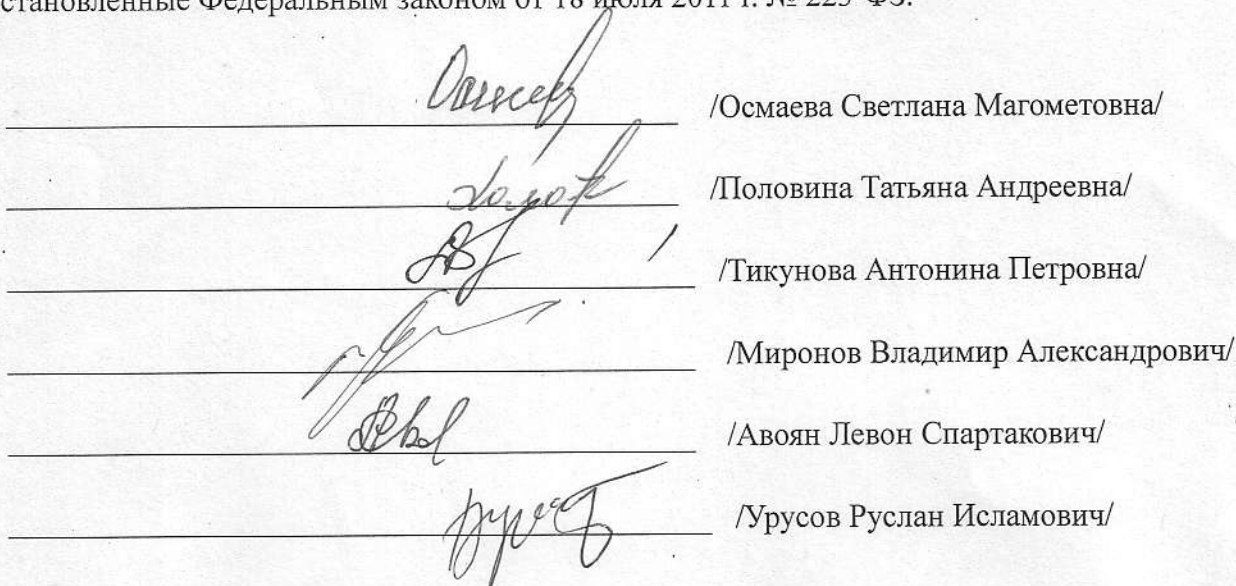 становленные Федеральным законом от 18 июля 2011 г. № 223-ФЗ.
/Осмаева Светлана Магометовна/
/Половина Татьяна Андреевна/
/Тикунова Антонина Петровна/
/Миронов Владимир Александрович/
/Авоян Левон Спартакович/
/Урусов Руслан Исламович/